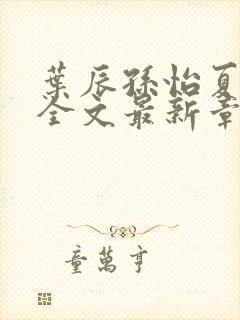 葉辰孫怡夏
全文最新章
童萬亨